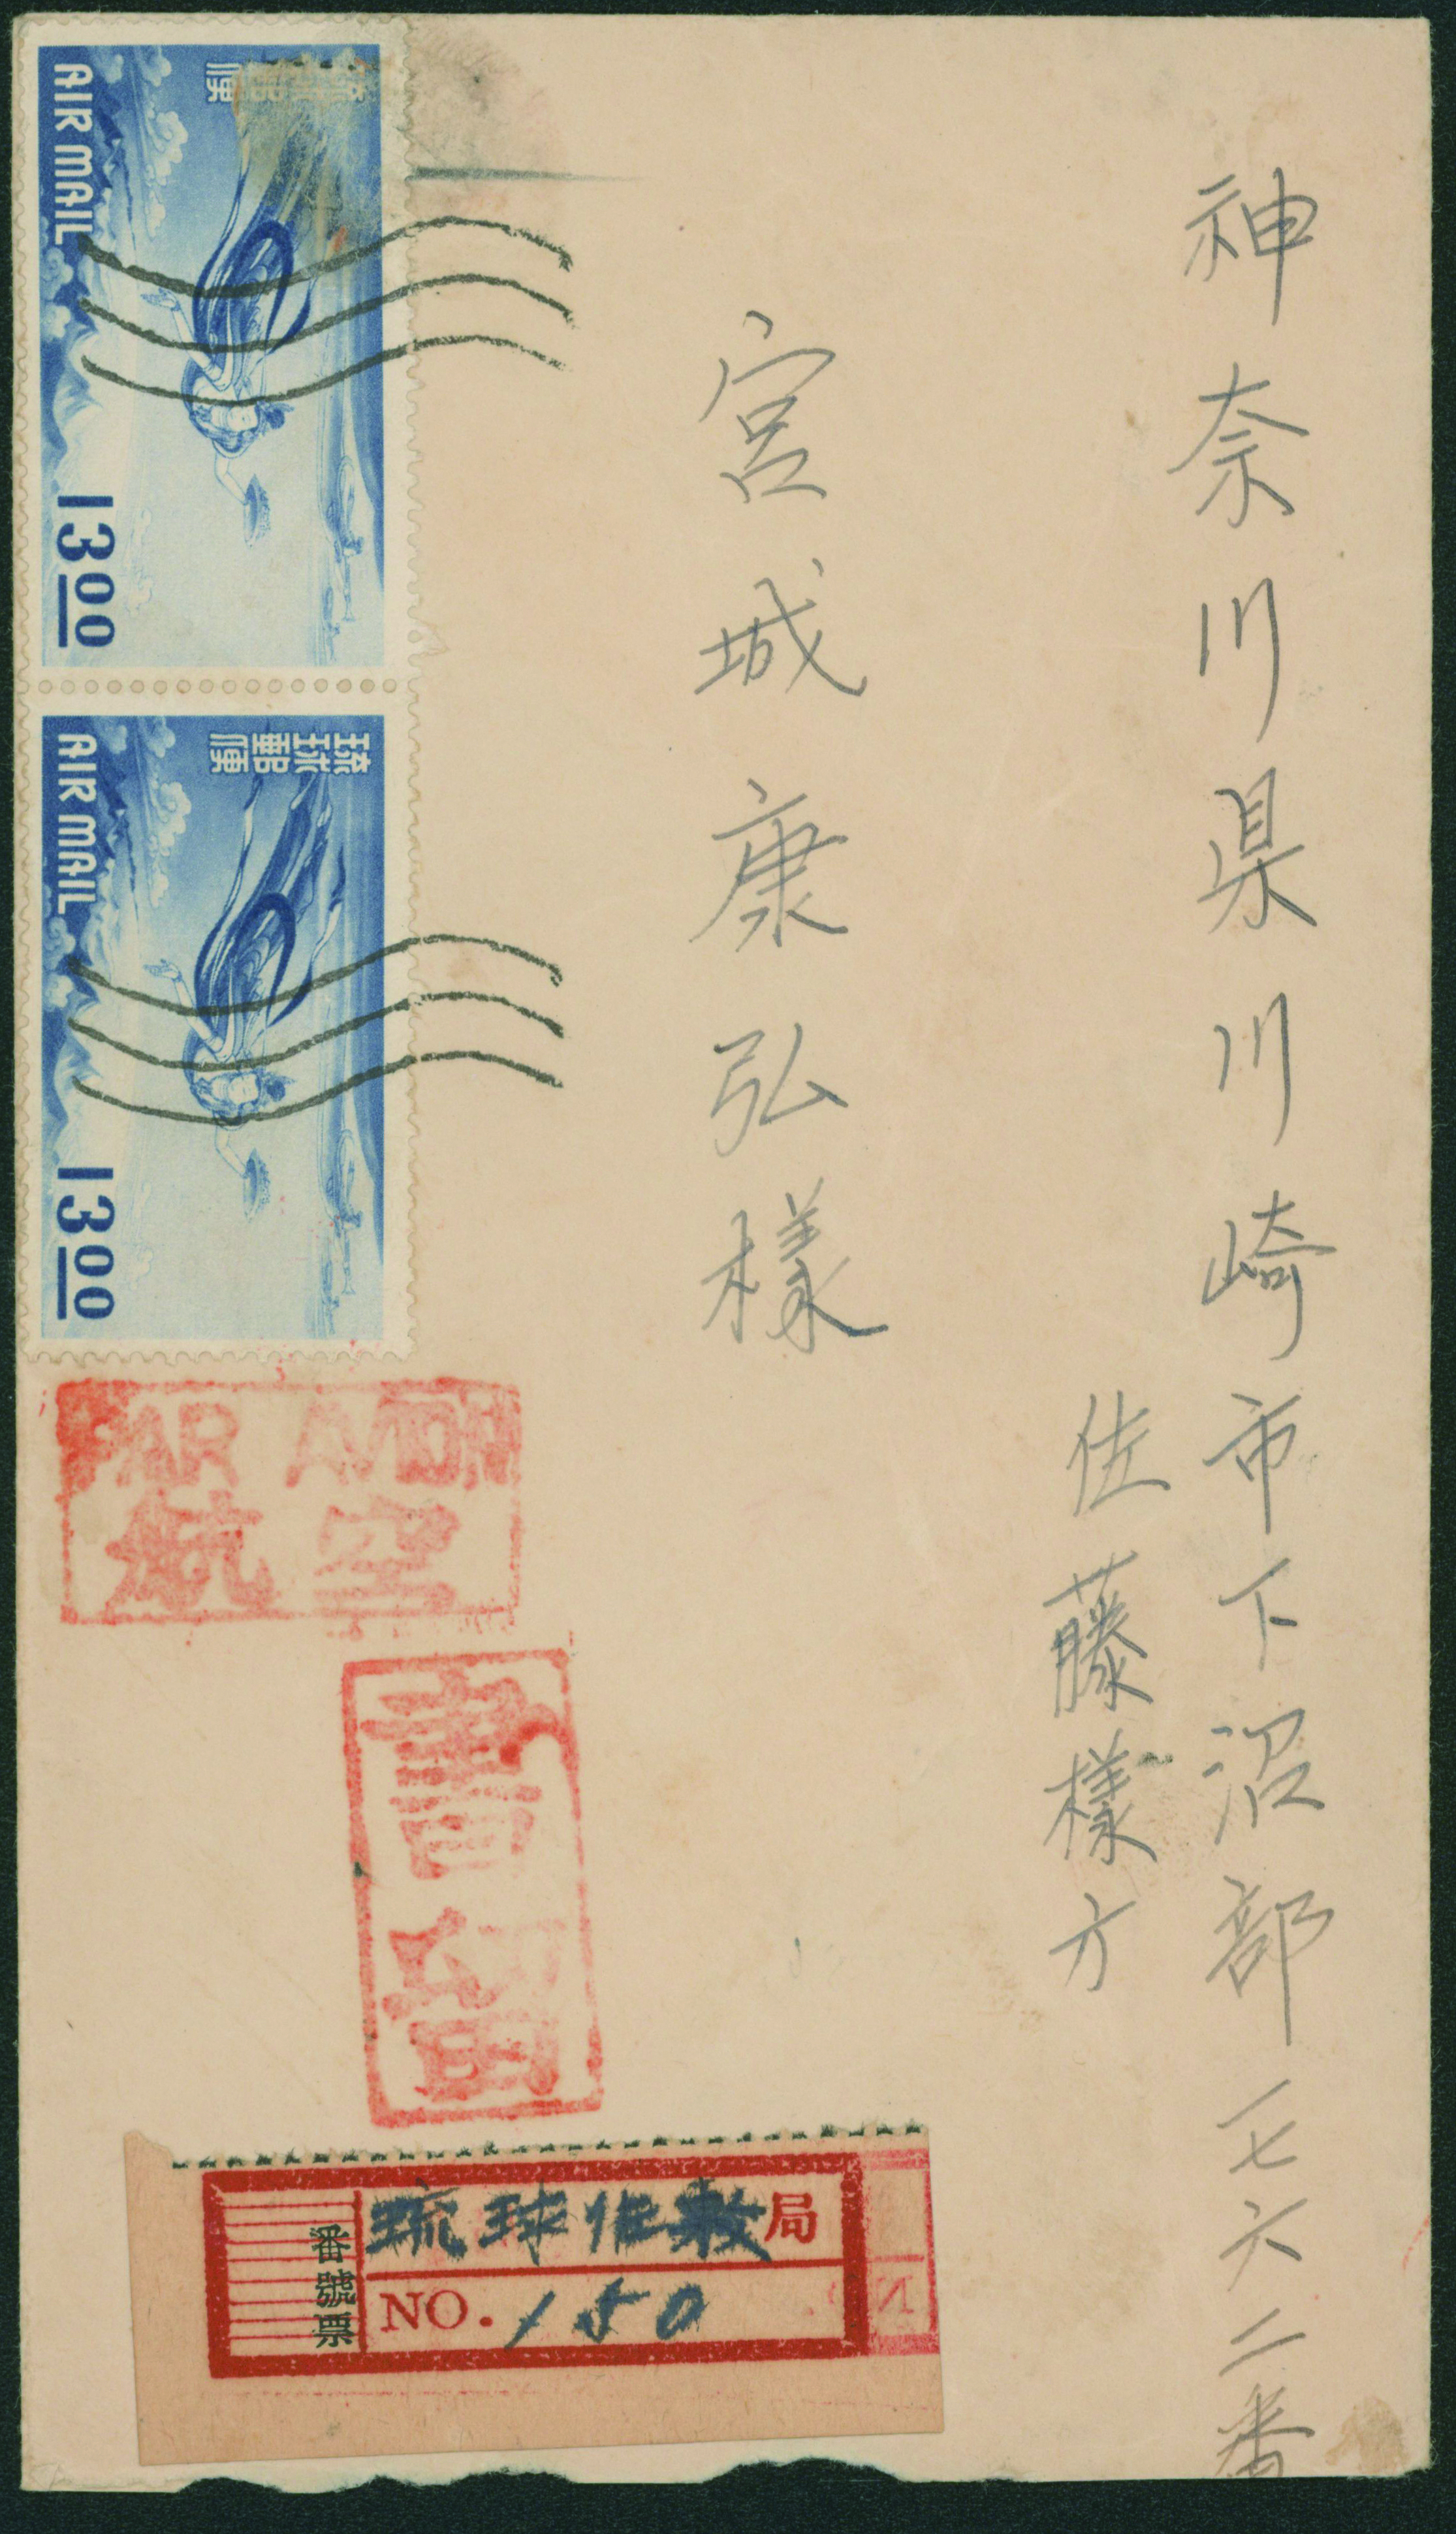 神奈川県川崎市下沼部一七六二番
佐藤様方
宮城康弘様
琉球郵便
AIR MAIL
13.00
琉球郵便
AIR MAIL
13.00
PAR AVION
航空
書留
番號票
琉球 局
NO. 150